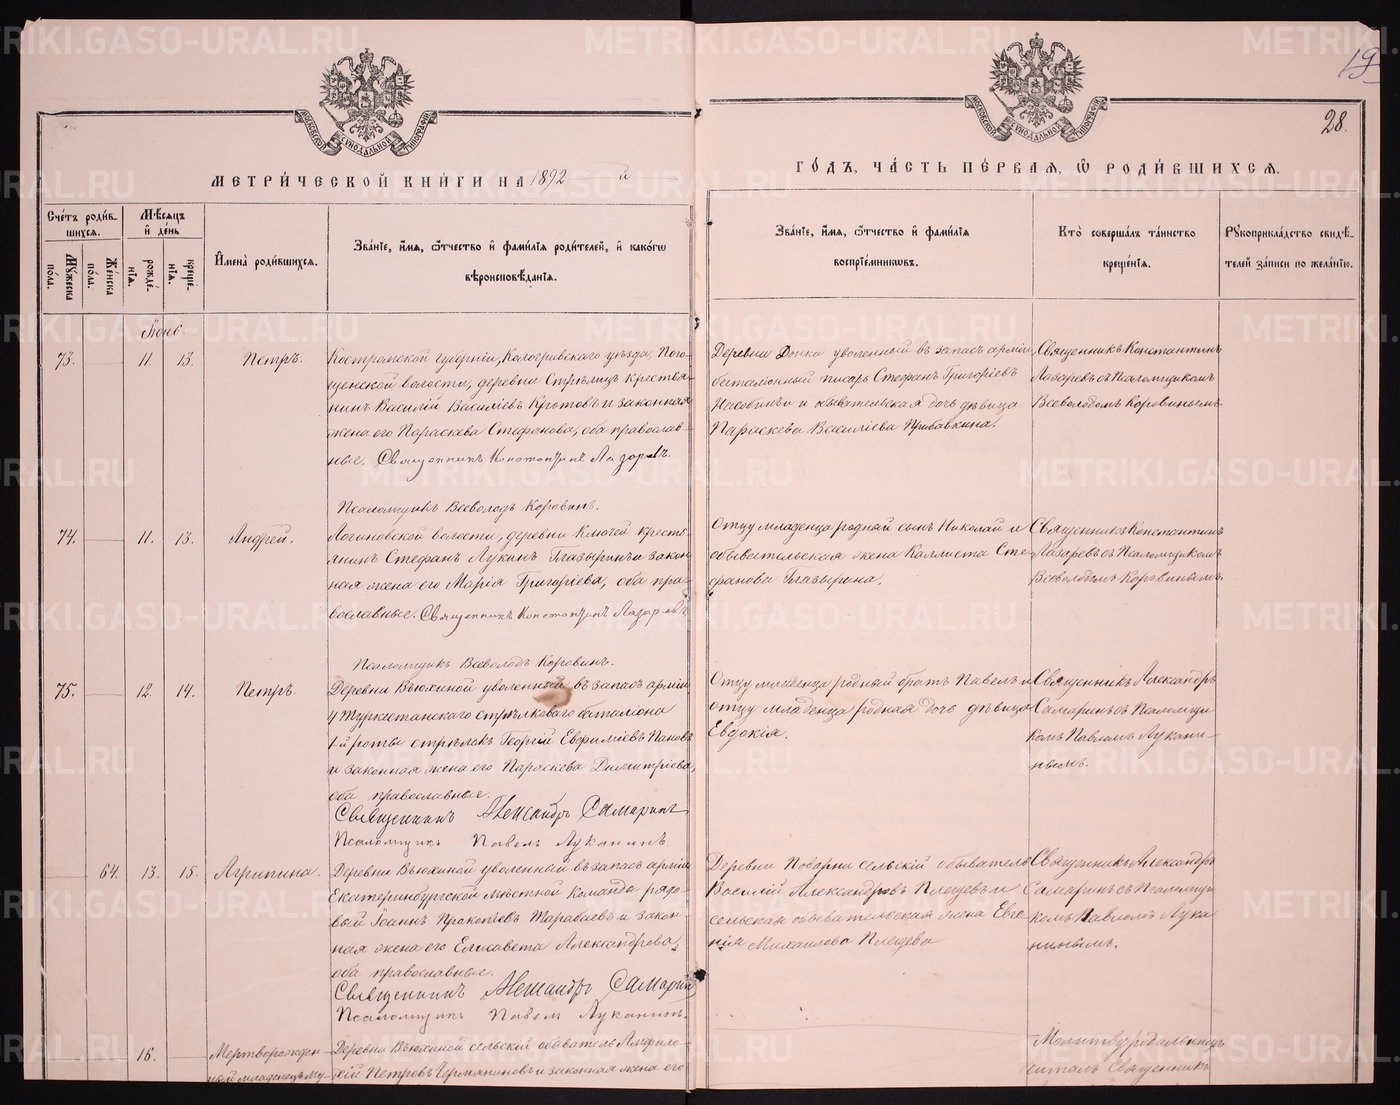 19
28.
МЕТРИ́ЧЕСКОЙ КНИ́ГИ НА 1892 й
ГО́ДЪ, ЧА́СТЬ ПЕ́РВАЯ, Ѿ РОДИ́ВШИХСЯ.
Сче́тъ роди́в-
шихся.
Му́жеска по́ла.
Же́нска по́ла.
Мѣ́сяцъ и де́нь
рожде́нїя.
креще́нїя.
И́мена роди́вшихся.
Зва́нїе, и́мя, ѻ́тчество и фами́лїя роди́телей, и како́гѡ
вѣроисповѣ́данїя.
Зва́нїе, и́мя, ѻ́тчество и фами́лїя
воспрїе́мниковъ.
Кто̀ соверша́лъ та́инство
креще́нїя.
Рꙋкоприкла́дство свидѣ́-
телей за́писи по жела́нїю.
73. — 11. 13. Петръ.
Костромской губерніи, Кологривского уѣзда,
волости, деревни Стрѣлицъ крестья-
нинъ Василій Василіевъ Кротовъ и законная
жена его Параскева Стефанова, оба православ-
ные. Священникъ Константинъ Лазаревъ.
Псаломщикъ Всеволодъ Коровинъ.
Деревни уволенный въ запасъ арміи
баталіонный писарь Стефанъ Григоріевъ
и обывательская дочь дѣвица
Параскева Василіева Прибавкина.
Священникъ Константинъ
Лазаревъ съ Псаломщикомъ
Всеволодомъ Коровинымъ.
74. — 11. 13. Андрей.
Логиновской волости, деревни Ключей кресть-
янинъ Стефанъ Лукинъ Глазыринъ и закон-
ная жена его Марія Григоріева, оба пра-
вославные. Священникъ Константинъ Лазаревъ.
Псаломщикъ Всеволодъ Коровинъ.
Отцу младенца родный сынъ Николай и
обывательская жена Каллиста Сте-
фанова Глазырина.
Священникъ Константинъ
Лазаревъ съ Псаломщикомъ
Всеволодомъ Коровинымъ.
75. — 12. 14. Петръ.
Деревни Вьюхиной уволенный въ запасъ арміи
4 Туркестанскаго стрѣлковаго баталіона
1-й роты стрѣлокъ Георгій Евфиміевъ Пановъ
и законная жена его Параскева Димитріева,
оба православные.
Священникъ Александръ Самаринъ
Псаломщикъ Павелъ Луканинъ.
Отцу младенца родный братъ Павелъ и
отцу младенца родная дочь дѣвица
Евдокія.
Священникъ Александръ
Самаринъ съ Псаломщи-
комъ Павломъ Лукани-
нымъ.
— 64. 13. 15. Агрипина.
Деревни Вьюхиной уволенный въ запасъ арміи
Екатеринбургской мѣстной команды рядо-
вой Іоаннъ Прокопіевъ Тарабаевъ и закон-
ная жена его Елисавета Александрова,
оба православные.
Священникъ Александръ Самаринъ
Псаломщикъ Павелъ Луканинъ.
Деревни Поварни сельскій обыватель
Василій Александровъ Плещевъ и
сельская обывательская жена Евге-
нія Михаилова Плещева
Священникъ Александръ
Самаринъ съ Псаломщи-
комъ Павломъ Лука-
нинымъ.
— 16. — Мертворожден-
ный младенецъ му-
Деревни Вьюхиной сельскій обыватель Амфило-
хій Петровъ и законная жена его
Молитву родильницѣ
читалъ Священникъ